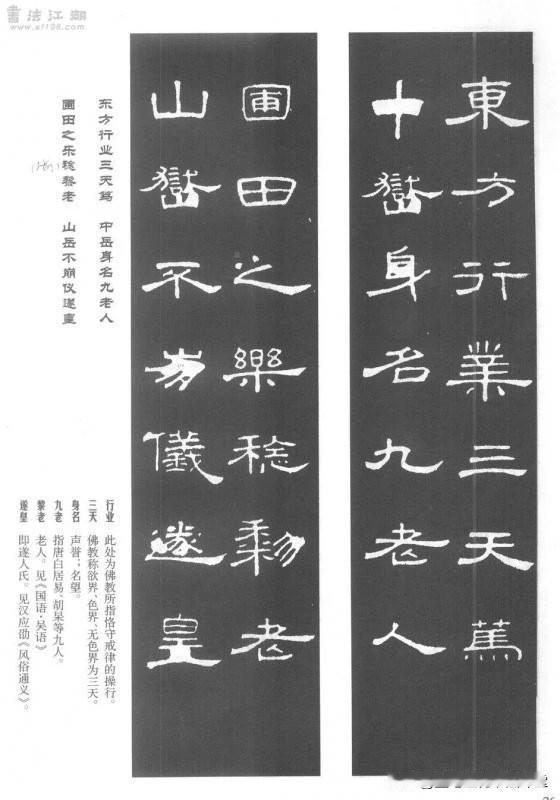 書法江湖
www.sf108.com
東方行業三天篤
十嶽身名九老人
圃田之樂稔黎老
山嶽不崩儀遂皇
东方行业三天笃　中岳身名九老人
圃田之乐稔黎老　山岳不崩仪遂皇
行业　此处为佛教所指恪守戒律的操行。
三天　佛教称欲界、色界、无色界为三天。
身名　声誉；名望。
九老　指唐白居易、胡杲等九人。
黎老　老人。见《国语·吴语》
遂皇　即遂人氏。见汉应劭《风俗通义》。